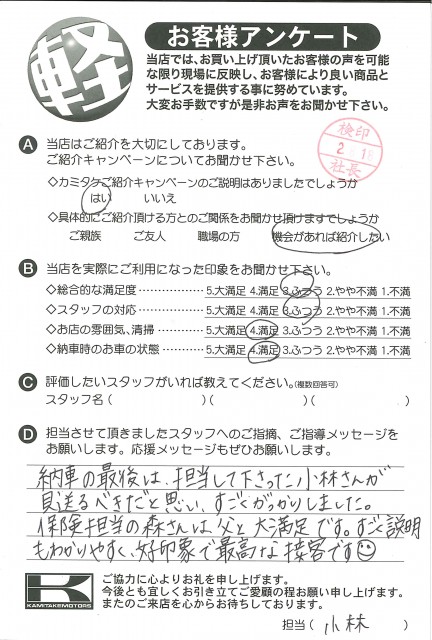 軽
お客様アンケート
当店では、お買い上げ頂いたお客様の声を可能
な限り現場に反映し、お客様により良い商品と
サービスを提供する事に努めています。
大変お手数ですが是非お声をお聞かせ下さい。
検印
2. 18
社長
A 当店はご紹介を大切にしております。
ご紹介キャンペーンについてお聞かせ下さい。
◇カミタケご紹介キャンペーンのご説明はありましたでしょうか
はい いいえ
◇具体的にご紹介頂ける方とのご関係をお聞かせ頂けますでしょうか
ご親族 ご友人 職場の方 機会があれば紹介したい
B 当店を実際にご利用になった印象をお聞かせ下さい。
◇総合的な満足度 5.大満足 4.満足 3.ふつう 2.やや不満 1.不満
◇スタッフの対応 5.大満足 4.満足 3.ふつう 2.やや不満 1.不満
◇お店の雰囲気、清掃 5.大満足 4.満足 3.ふつう 2.やや不満 1.不満
◇納車時のお車の状態 5.大満足 4.満足 3.ふつう 2.やや不満 1.不満
C 評価したいスタッフがいれば教えてください。(複数回答可)
スタッフ名( )( )( )
D 担当させて頂きましたスタッフへのご指摘、ご指導メッセージを
お願いします。応援メッセージもぜひお願いします。
納車の最後は、担当して下さった小林さんが
見送るべきだと思い、すごくがっかりしました。
保険担当の森さんは、父と大満足です。すごく説明
もわかりやすく、好印象で最高な接客です
K
KAMITAKEMOTORS
ご協力に心よりお礼を申し上げます。
今後とも宜しくお引き立てご愛顧の程お願い申し上げます。
またのご来店を心からお待ちしております。
担当( 小林 )